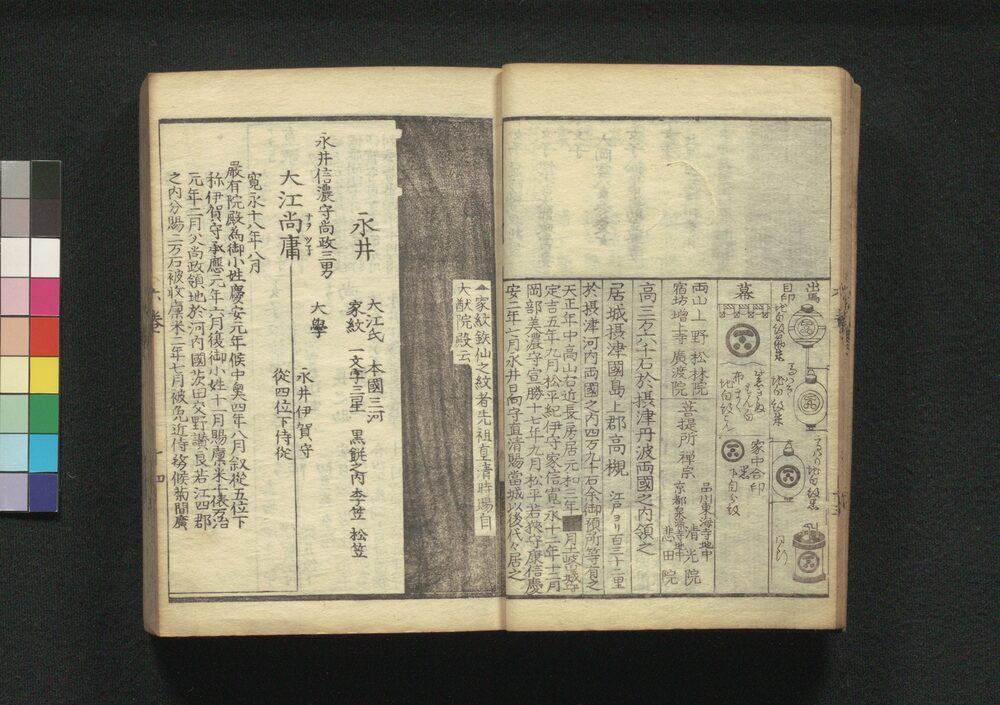 出馬
印
幕
家中合印
両山上野松林院
宿坊増上寺廣渡院
菩提所禅宗
品川東海寺地中
清光院
悲田院
高三万六十石於摂津丹波両國之内領之
居城摂津國島上郡高槻 江戸ヨリ百三十二里
於摂津河内両國之内四万九十石余御預所等有之
天正年中高山右近長房居元和三年
定吉五年九月松平紀伊守家信寛永十二年十二月
岡部美濃守宣勝十七年九月松平若狭守康信慶
安二年七月永井日向守直清賜當城以後代々居之
家紋鉄仙之紋者先祖直清時賜自
大猷院殿云
永井
大江氏 本國三河
家紋 一文字三星 黒餅之内李笠 松笠
永井信濃守尚政三男
大江尚庸
ナヲツネ
大學
永井伊賀守
従四位下侍従
寛永十八年八月
嚴有院殿為御小姓慶安元年候中奥四年八月叙從五位下
称伊賀守承應元年六月復御小姓十一月賜廩米千俵万治
元年二月父尚政領地於河内國茨田交野讃良若江四郡
之内分賜二万石被收廩米二年七月被免近侍務候菊間廣